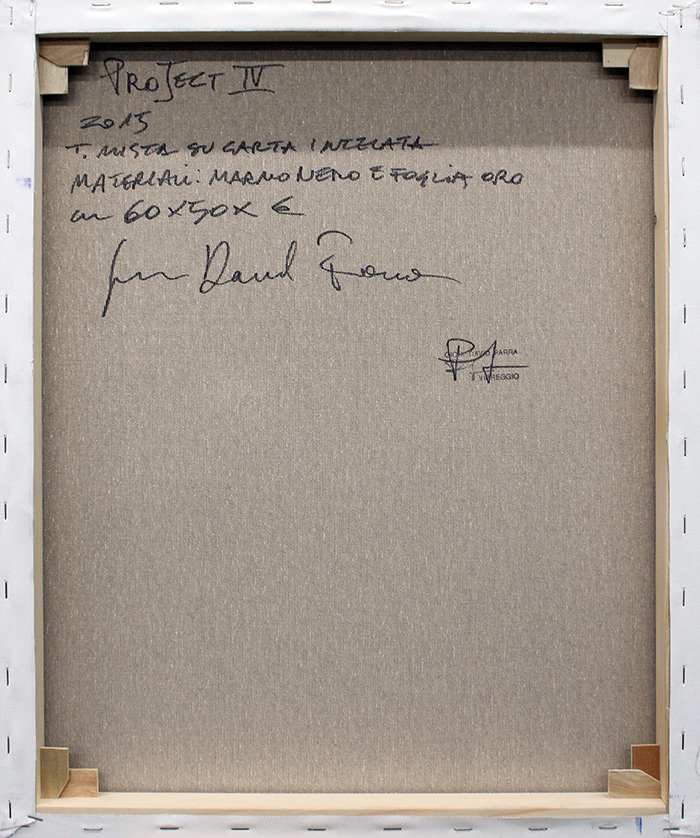 PROJECT IV
2015
T. MISTA SU CARTA INTELATA
MATERIALI: MARMO NERO E FOGLIA ORO
cm 60x50x 6
David
PARRA
VIAREGGIO